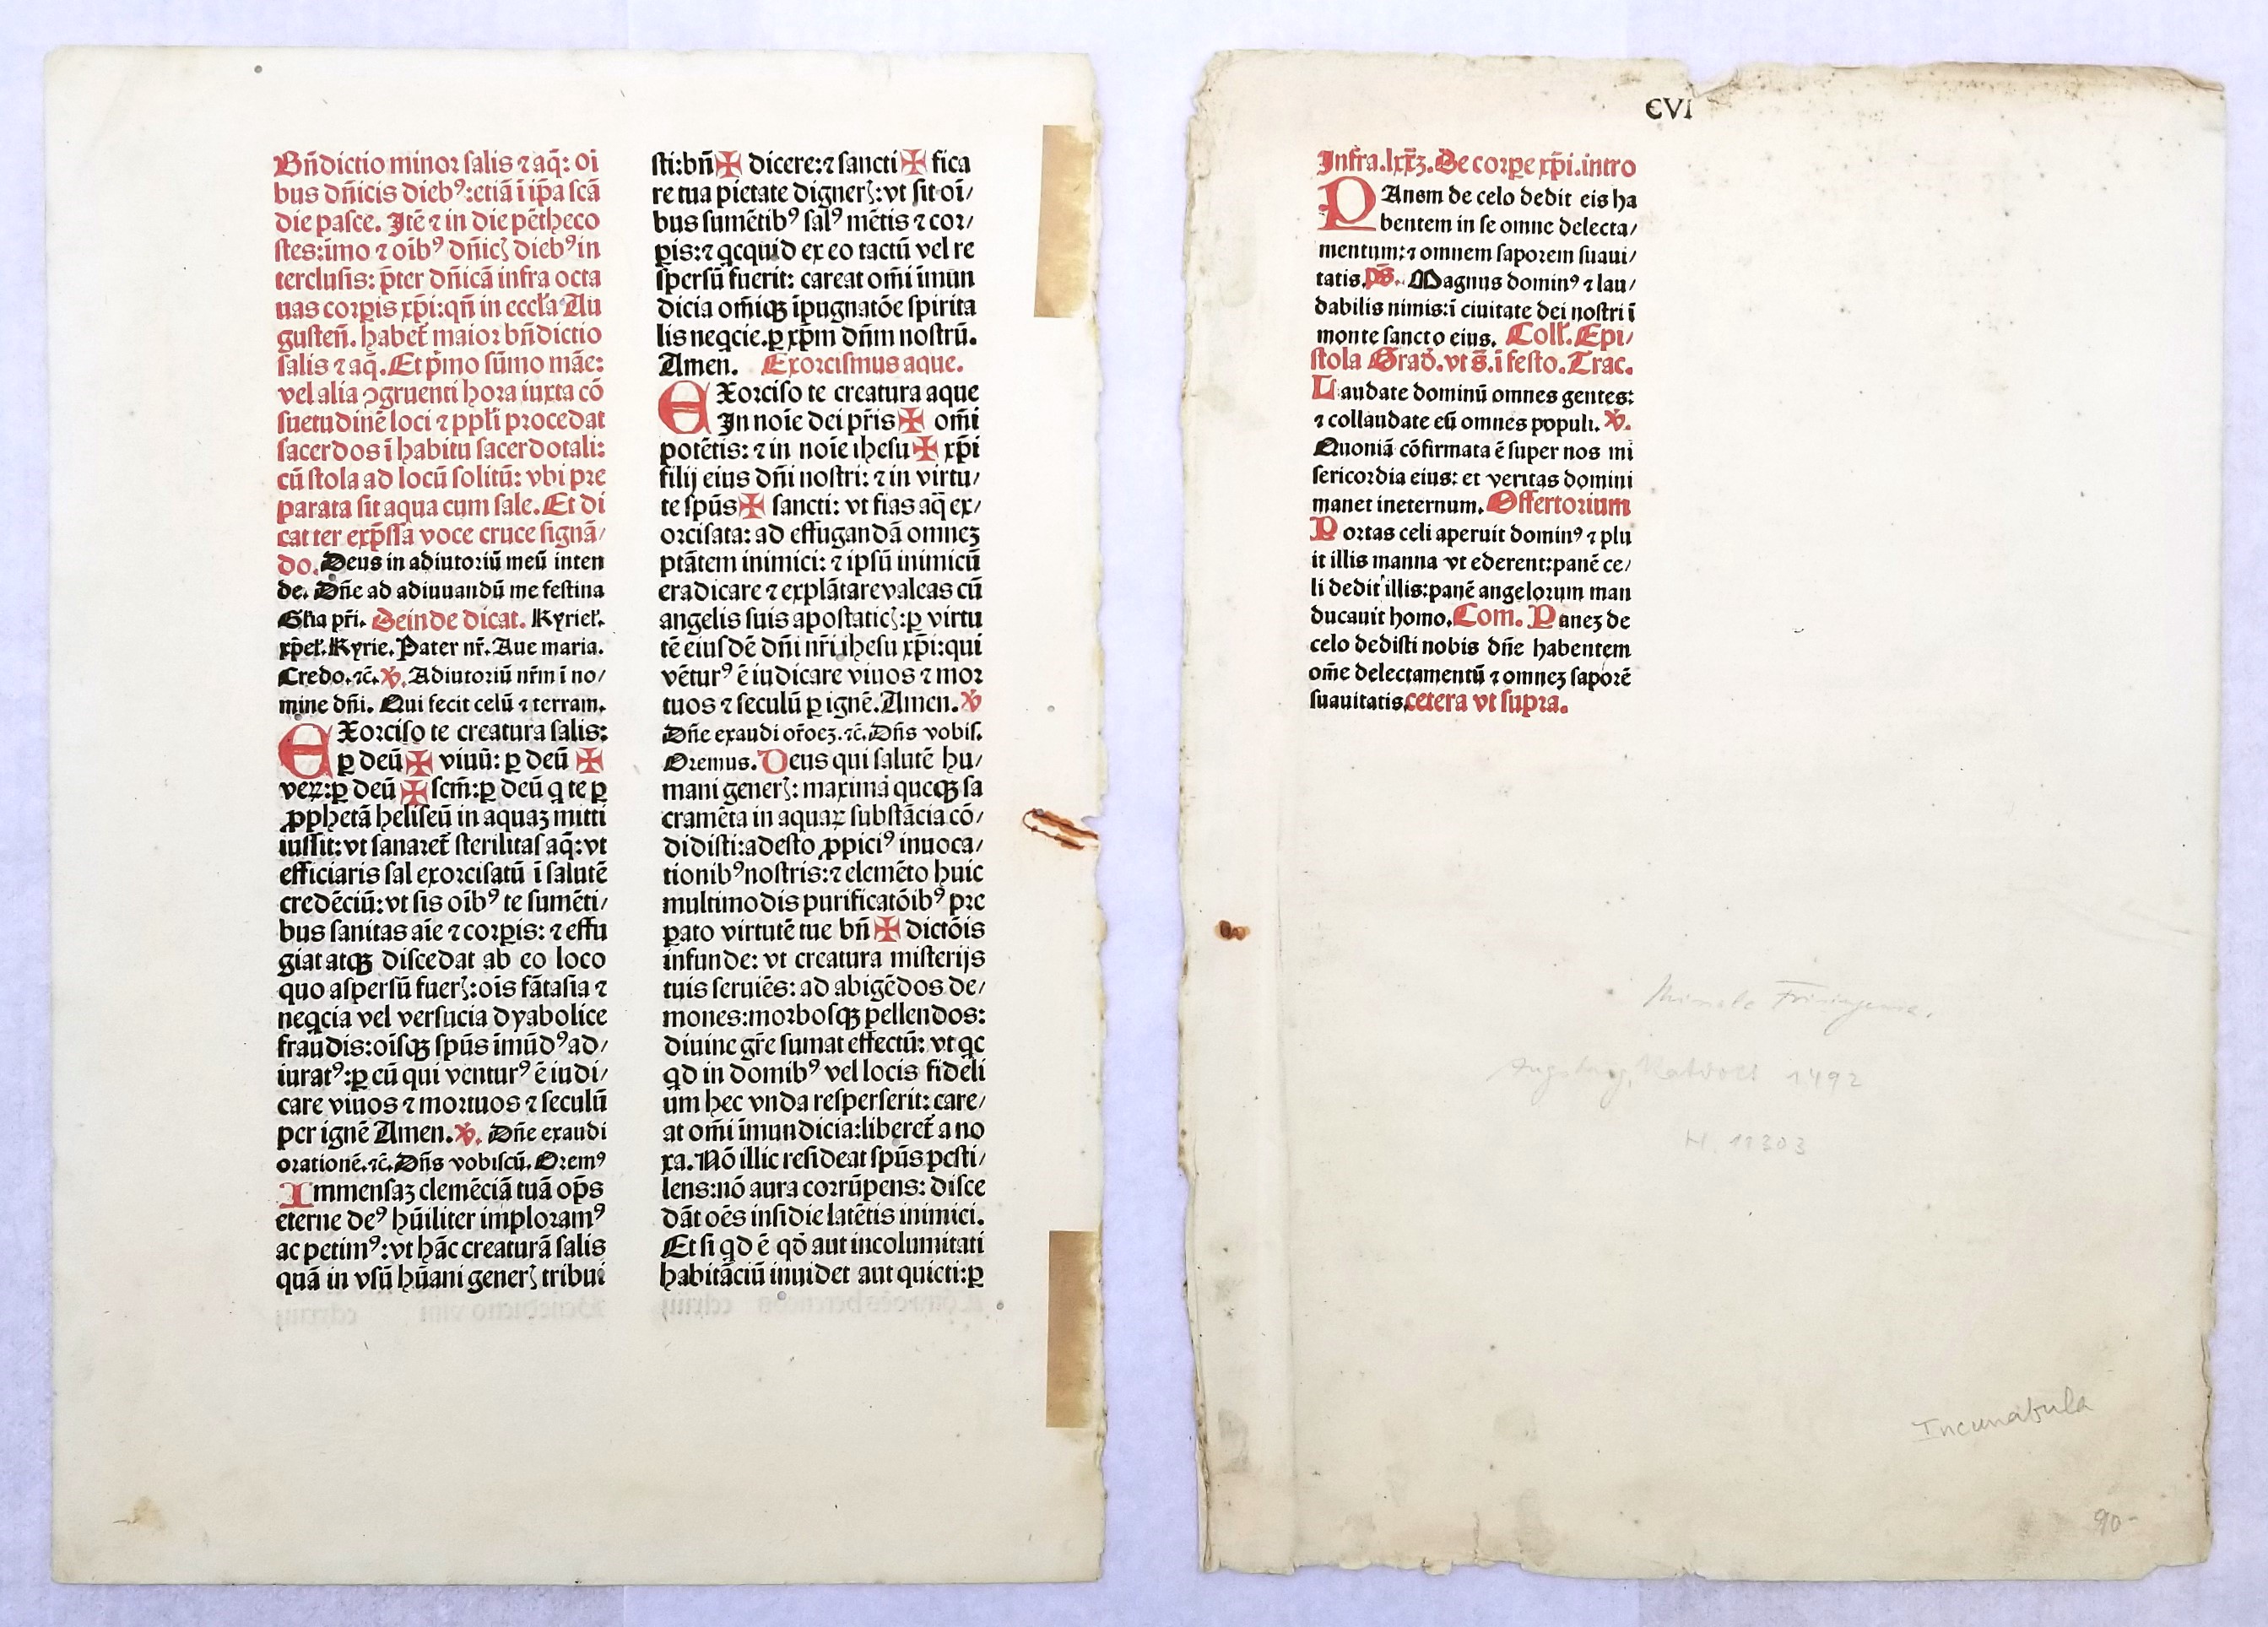 Bñdictio minor salis ⁊ aq̄: oī
bus dñicis diebꝰ:etiā ī ip̄a scā
die pasce. Itē ⁊ in die pētheco
stes:īmo ⁊ oībꝰ dñicꝭ diebꝰ in
terclusis: p̄ter dñicā infra octa
uas corꝑis xp̄i:qñ in eccĺa Au
gusteñ. habet᷑ maior bñdictio
salis ⁊ aq̄. Et pͥmo sūmo māe:
vel alia ꝯgruenti hora iuxta cō
suetudinē loci ⁊ ppĺi procedat
sacerdos ī habitu sacerdotali:
cū stola ad locū solitū: vbi pre
parata sit aqua cum sale. Et di
cat ter exp̄ssa voce cruce signā/
do. Deus in adiutoriū meū inten
de. Dñe ad adiuuandū me festina
Gĺia pr̄i. Deinde dicat. Kyrieĺ.
xp̄eĺ. Kyrie. Pater nr̄. Aue maria.
Credo.⁊c̄. ℣. Adiutoriū nr̄m ī no/
mine dñi. Qui fecit celū ⁊ terram.
EXorciso te creatura salis:
ꝑ deū ✠ viuū: ꝑ deū ✠
veꝝ:ꝑ deū ✠ scm̄:ꝑ deū q te ꝑ
ꝓphetā heliseū in aquaꝫ mitti
iussit:vt sanaret᷑ sterilitas aq̄:vt
efficiaris sal exorcisatū ī salutē
credēciū:vt sis oībꝰ te sumēti/
bus sanitas aīe ⁊ corꝑis: ⁊ effu
giat atqꝫ discedat ab eo loco
quo aspersū fuerꝭ:oīs fātasia ⁊
neqcia vel versucia dyabolice
fraudis:oīsqꝫ spūs īmūdꝰ ad/
iuratꝰ:ꝑ eū qui venturꝰ ē iudi/
care viuos ⁊ mortuos ⁊ seculū
per ignē Amen. ℣. Dñe exaudi
orationē.⁊c̄. Dñs vobiscū. Oremꝰ
Immensaꝫ clemēciā tuā op̄s
eterne deꝰ hūiliter imploramꝰ
ac petimꝰ:vt hāc creaturā salis
quā in vsū hūani generꝭ tribui
sti:bñ ✠ dicere:⁊ sancti ✠ fica
re tua pietate dignerꝭ:vt sit oī/
bus sumētibꝰ salꝰ mētis ⁊ cor/
ꝑis:⁊ qcquid ex eo tactū vel re
spersū fuerit: careat om̄i īmun
dicia om̄iqꝫ īpugnatōe spirita
lis neqcie.ꝑ xp̄m dñm nostrū.
Amen. Exorcismus aque.
EXorciso te creatura aque
In noīe dei pr̄is ✠ om̄i
potētis: ⁊ in noīe ihesu ✠ xp̄i
filij eius dñi nostri: ⁊ in virtu/
te spūs ✠ sancti: vt fias aq̄ ex/
orcisata: ad effugandā omneꝫ
ptātem inimici: ⁊ ipsū inimicū
eradicare ⁊ explātare valeas cū
angelis suis apostaticꝭ:ꝑ virtu
tē eiusdē dñi nr̄i ihesu xp̄i:qui
vēturꝰ ē iudicare viuos ⁊ mor
tuos ⁊ seculū ꝑ ignē. Amen. ℣
Dñe exaudi or̄oeꝫ.⁊c̄. Dñs vobis.
Oremus. Deus qui salutē hu/
mani generꝭ: maxima queqꝫ sa
cramēta in aquaꝝ substācia cō/
didisti:adesto ꝓpiciꝰ inuoca/
tionibꝰ nostris:⁊ elemēto huic
multimodis purificatōibꝰ pre
pato virtutē tue bñ ✠ dictōis
infunde: vt creatura misterijs
tuis seruiēs: ad abigēdos de/
mones:morbosqꝫ pellendos:
diuine gr̄e sumat effectū: vt qc
qd in domibꝰ vel locis fideli
um hec vnda resperserit: care/
at om̄i īmundicia:liberet᷑ a no
xa. Nō illic resideat spūs pesti/
lens:nō aura corrūpens: disce
dāt oēs insidie latētis inimici.
Et si qd ē qō aut incolumitati
habitāciū inuidet aut quieti:ꝑ
CVI
Infra.lxxꝫ. De corꝑe xp̄i. intro
PAnem de celo dedit eis ha
bentem in se omne delecta/
mentum:⁊ omnem saporem suaui/
tatis. p̄s. Magnus dominꝰ ⁊ lau/
dabilis nimis:ī ciuitate dei nostri ī
monte sancto eius. Coll̄. Epi/
stola Grad̄. vt s̄. ī festo. Trac.
Laudate dominū omnes gentes:
⁊ collaudate eū omnes populi. ℣.
Quoniā cōfirmata ē super nos mi
sericordia eius: et veritas domini
manet ineternum. Offertorium
Portas celi aperuit dominꝰ ⁊ plu
it illis manna vt ederent:panē ce/
li dedit illis:panē angelorum man
ducauit homo. Com. Paneꝫ de
celo dedisti nobis dñe habentem
om̄e delectamentū ⁊ omneꝫ saporē
suauitatis. cetera vt supra.
Missale Frisingense.
Augsburg, Ratdolt 1492
H. 11303
Incunabula
90-